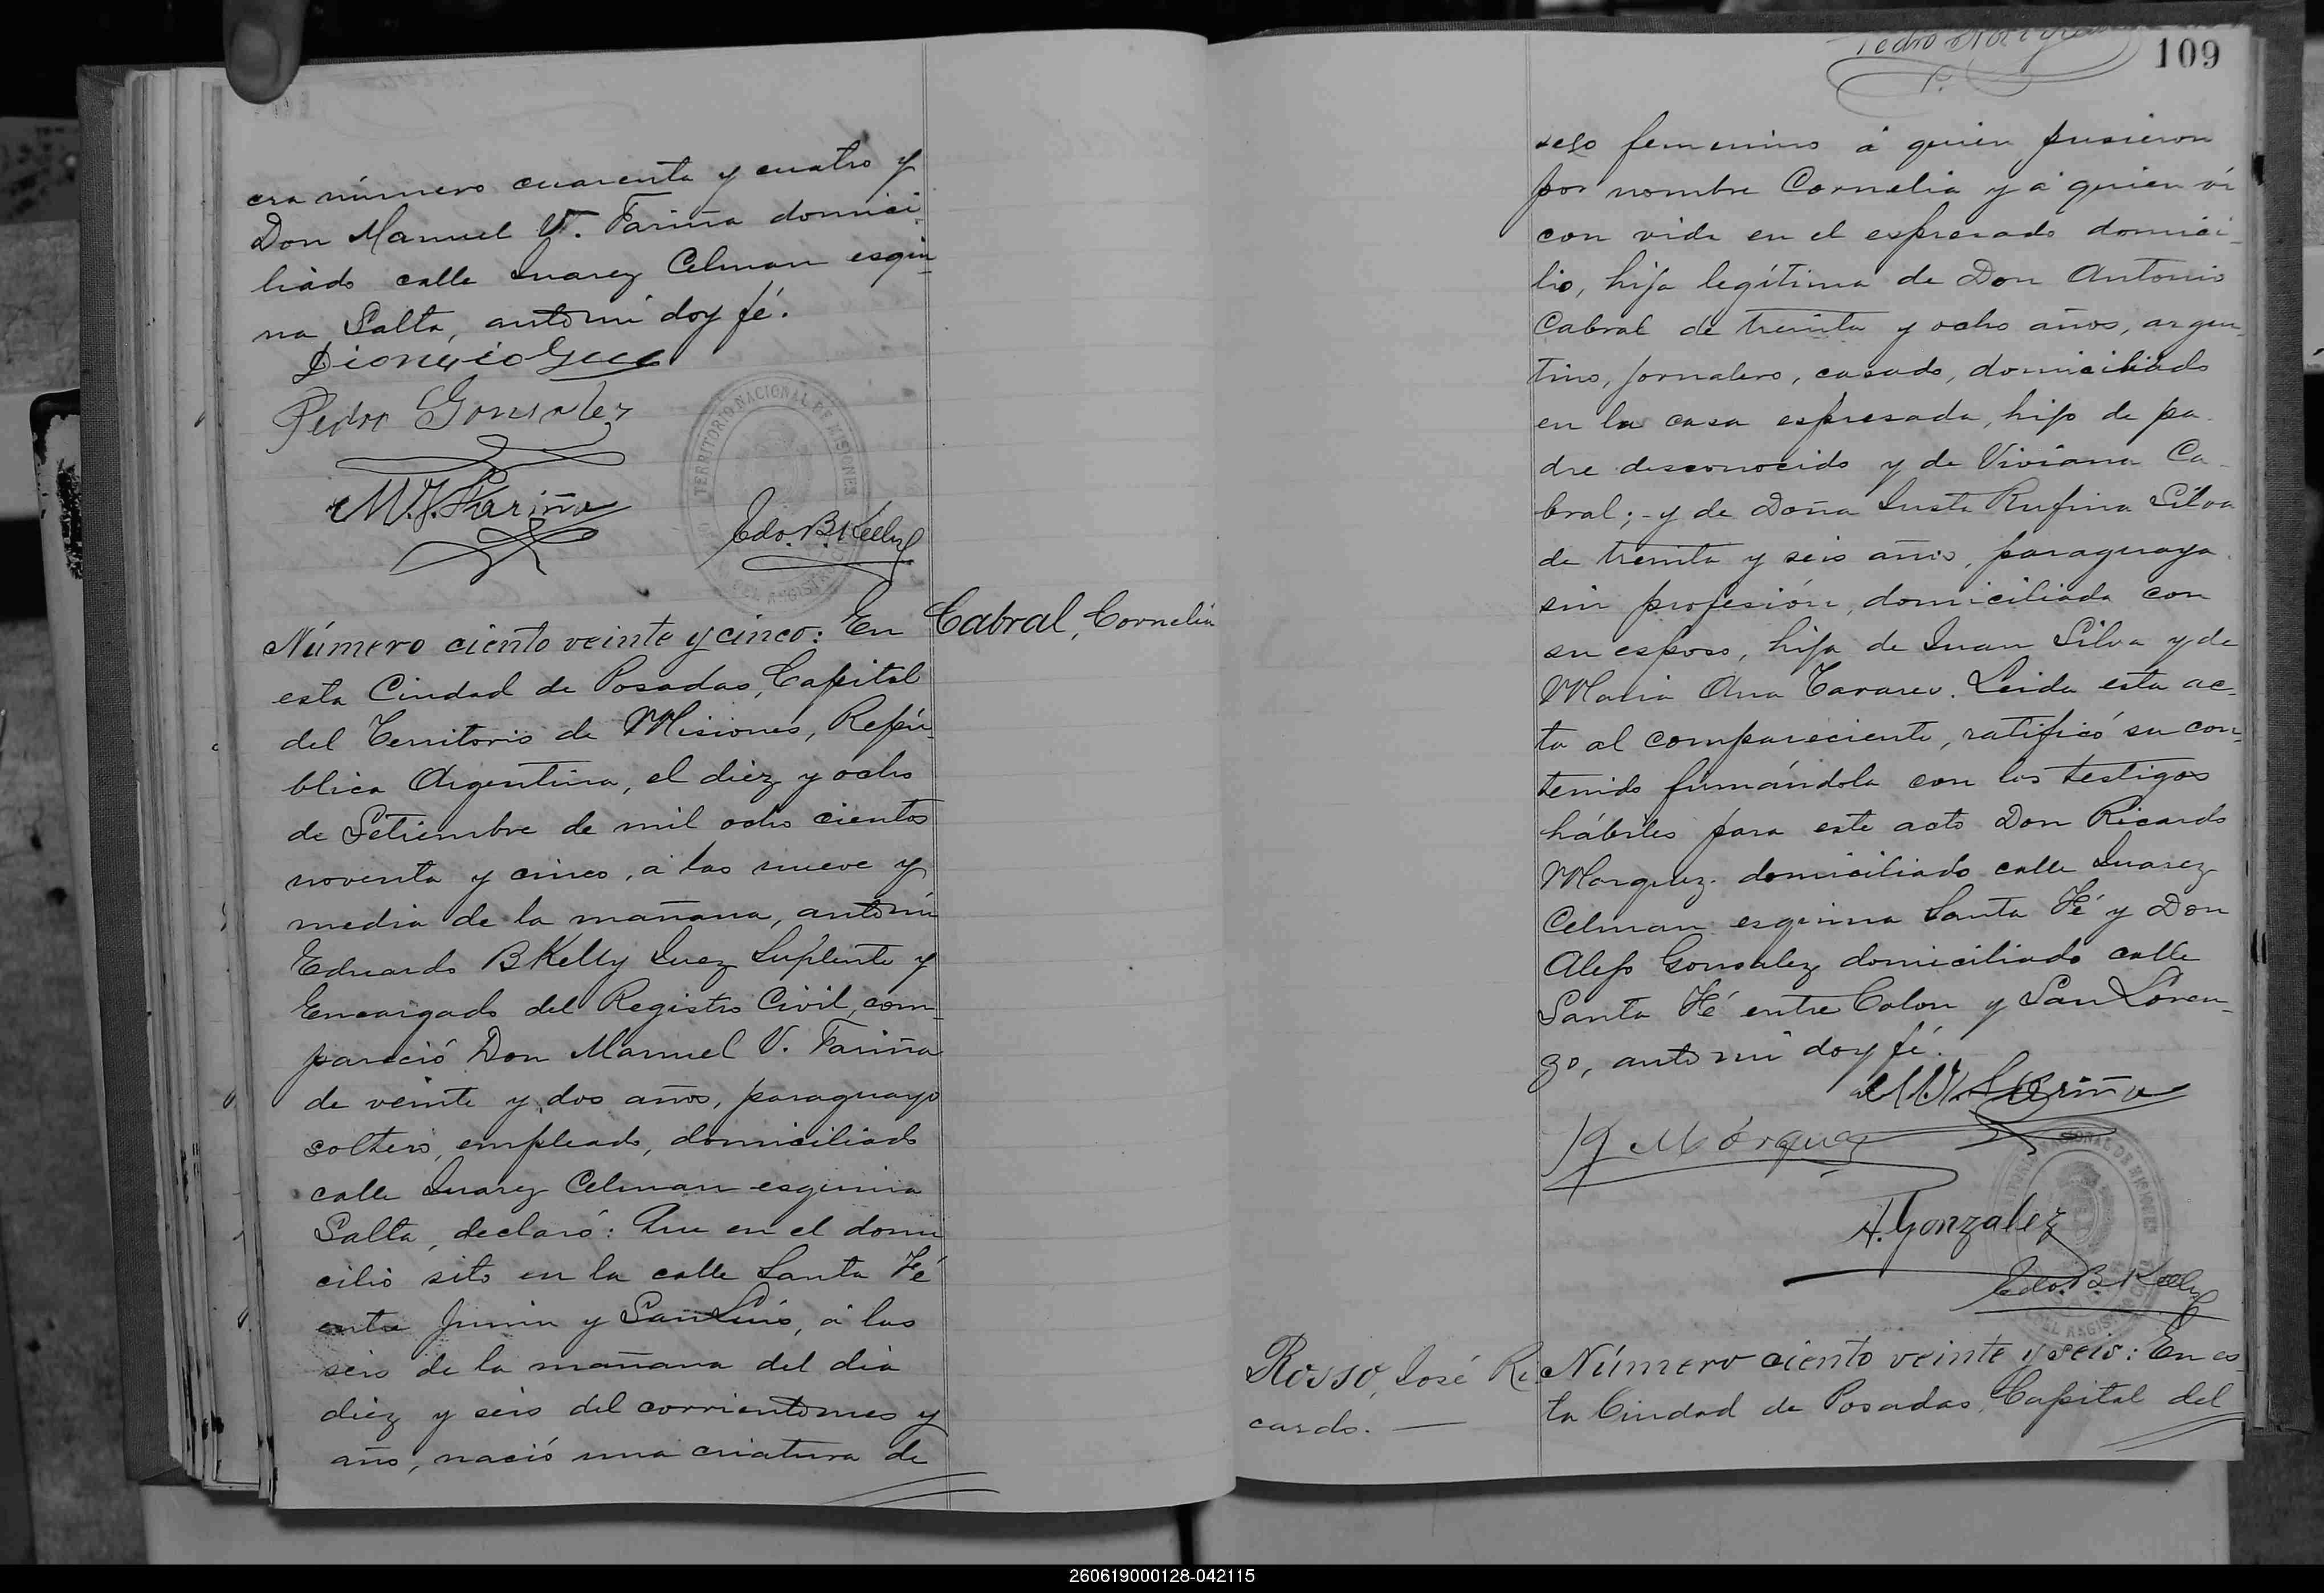 cra número cuarenta y cuatro y
Don Manuel V. Fariña domici
liado calle Juarez Celman esqui
na Salta, antemi doy fé.
Pedro Gonzalez
M. V. Fariña
TERRITORIO NACIONAL DE MISIONES
Edo. B. Kelly
Número ciento veinte y cinco: En
Cabral, Cornelia
esta Ciudad de Posadas, Capital
del Territorio de Misiones, Repú
blica Argentina, el diez y ocho
de Setiembre de mil ocho cientos
noventa y cinco, á las nueve y
media de la mañana, antemi
Eduardo B Kelly Juez Suplente y
Encargado del Registro Civil, com
pareció Don Manuel V. Fariña
de veinte y dos años, paraguayo
soltero, empleado, domiciliado
calle Juarez Celman esquina
Salta, declaró: Que en el domi
cilio sito en la calle Santa Fé
entre Junin y San Luis, á las
seis de la mañana del dia
diez y seis del corriente mes y
año, nació una criatura de
109
sexo femenino á quien pusieron
por nombre Cornelia y á quien ví
con vida en el espresado domici-
lio, hija legítima de Don Antonio
Cabral de treinta y ocho años, argen
tino, jornalero, casado, domiciliado
en la casa espresada, hijo de pa-
dre desconocido y de Viviana Ca-
bral; - y de Doña Justa Rufina Silva
de treinta y seis años, paraguaya
sin profesión, domiciliada con
su esposo, hija de Juan Silva y de
Maria Ana Tavares. Leida esta ac-
ta al compareciente, ratificó su con-
tenido firmándola con los testigos
hábiles para este acto Don Ricardo
Marquez domiciliado calle Juarez
Celman esquina Santa Fé y Don
Alejo Gonzalez domiciliado calle
Santa Fé entre Colon y San Loren-
zo, antemi doy fé.
M. V. Fariña
R Márquez
A. Gonzalez
Edo. B. Kelly
Rosso, José Ri
cardo. —
Número ciento veinte y seis: En es-
ta Ciudad de Posadas, Capital del
260619000128-042115